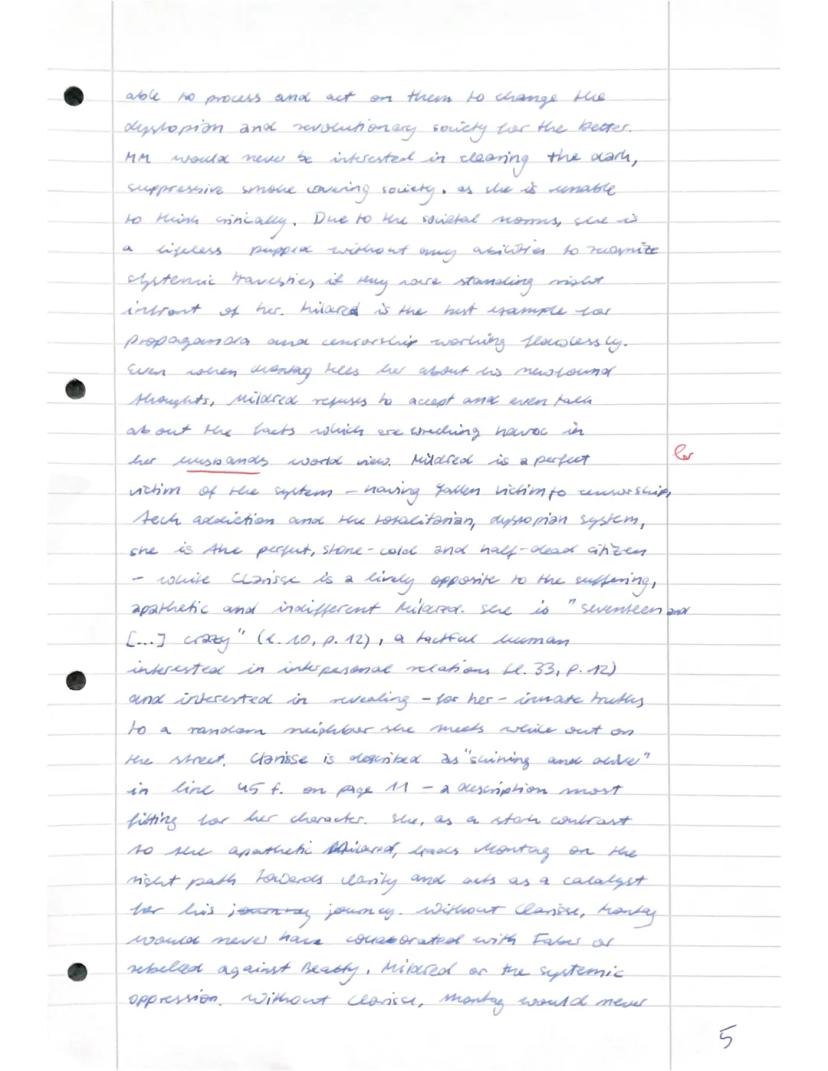 able to process and act on them to change the
dystopian and revolutionary society for the better.
MM would never be interested in clearing the dark,
suppressive smoke covering society, as she is unable
to think critically. Due to the societal norms, she is
a lifeless pupped without any abilities to recognize
systemic travesties, if they were standing right
infront of her. Mildred is the best example for
propaganda and censorship working flawlessly.
Even when Montag tells her about his newfound
thoughts, Mildred refuses to accept and even talk
about the facts which are wrecking havoc in
her husbands world view. Mildred is a perfect
victim of the system – having fallen victim to censorship,
tech addiction and the totalitarian, dystopian system,
she is the perfect, stone-cold and half-dead citizen
– while Clarisse is a lively opposite to the suffering,
apathetic and indifferent Mildred. She is "seventeen and
[...] crazy" (l. 10, p. 12), a tactful human
interested in interpersonal relations (l. 33, p. 12)
and interested in revealing – for her – innate truths
to a random neighbor she meets while out on
the street. Clarisse is described as "shining and alive"
in line 45 f. on page 11 – a description most
fitting for her character. She, as a stark contrast
to the apathetic Mildred, leads Montag on the
right path towards clarity and acts as a catalyst
for his journey. Without Clarisse, Montag
would never have collaborated with Faber or
rebelled against Beatty, Mildred or the systemic
oppression. Without Clarisse, Montag would never
5